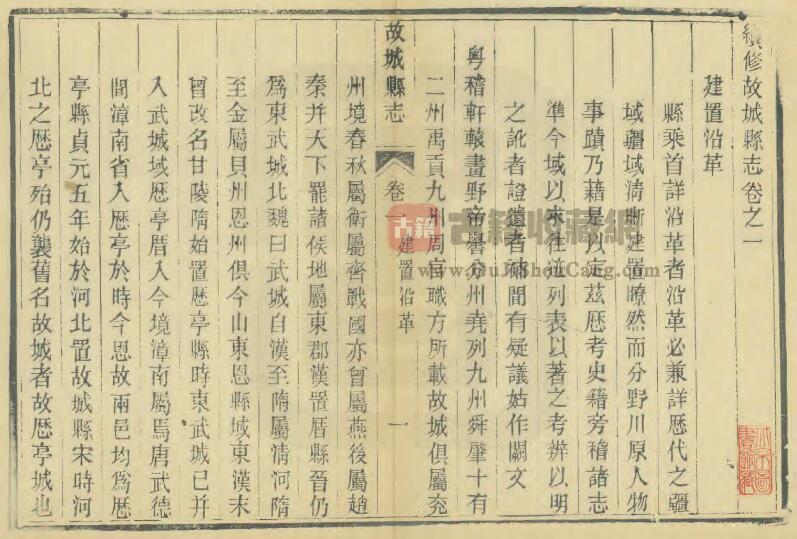 續修故城縣志卷之一
建置沿革
縣乘首詳沿革者沿革必兼詳歷代之疆
域疆域清晰建置瞭然而分野川原人物
事蹟乃藉是以定茲歷考史籍旁稽諸志
準今域以求往迹列表以著之考辨以明
之訛者證遺者補間有疑議姑作闕文
粵稽軒轅畫野帝嚳分州堯列九州舜肇十有
二州禹貢九州周官職方所載故城俱屬兖
故城縣志 卷一 建置沿革 一
州境春秋屬衛屬齊戰國亦曾屬燕後屬趙
秦并天下罷諸侯地屬東郡漢置厝縣晉仍
爲東武城北魏曰武城自漢至隋屬清河隋
至金屬貝州恩州俱今山東恩縣域東漢末
曾改名甘陵隋始置歷亭縣時東武城已并
入武城域歷亭厝入今境漳南屬焉唐武德
間漳南省入歷亭於時今恩故兩邑均爲歷
亭縣貞元五年始於河北置故城縣宋時河
北之歷亭殆仍襲舊名故城者故歷亭城也
古籍收藏網
www.GuJiShouCang.com